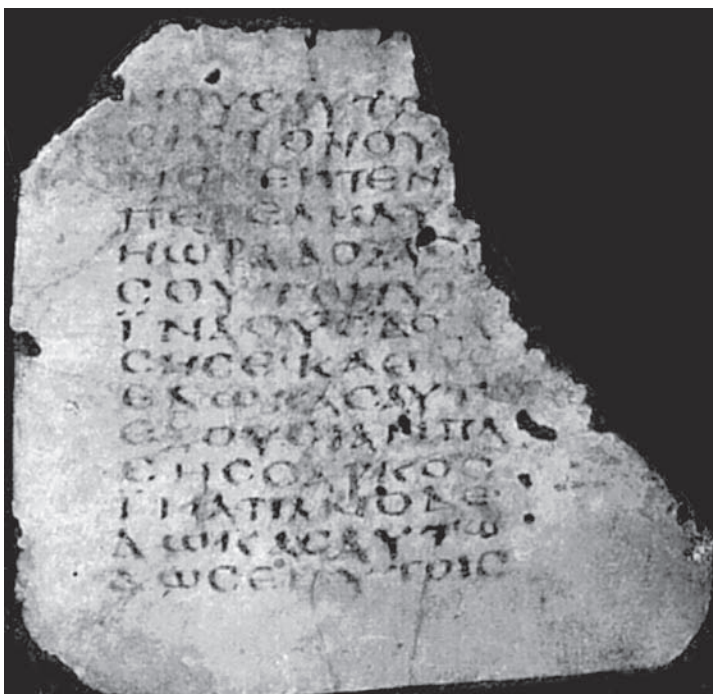 ΜΟΥϹΑΥΤΟ
ΕΙϹΤΟΝΟΥ
ΝΟΝΕΙΠΕΝ
ΠΕΡΕΛΗΛΥ
ΗΩΡΑΔΟΞΑϹΟ
ϹΟΥΤΟΝΥΙ
ΪΝΑΟΥϹΔΟ
ϹΗϹΕΚΑΘ
ΕΔΩΚΑϹΑΥΤ
ΕΞΟΥϹΙΑΝΠΑ
ϹΗϹϹΑΡΚΟϹ
ΪΝΑΠΑΝΟΔΕ
ΔΩΚΑϹΑΥΤΩ
ΔΩϹΕΙΑΥΤΟΙϹ